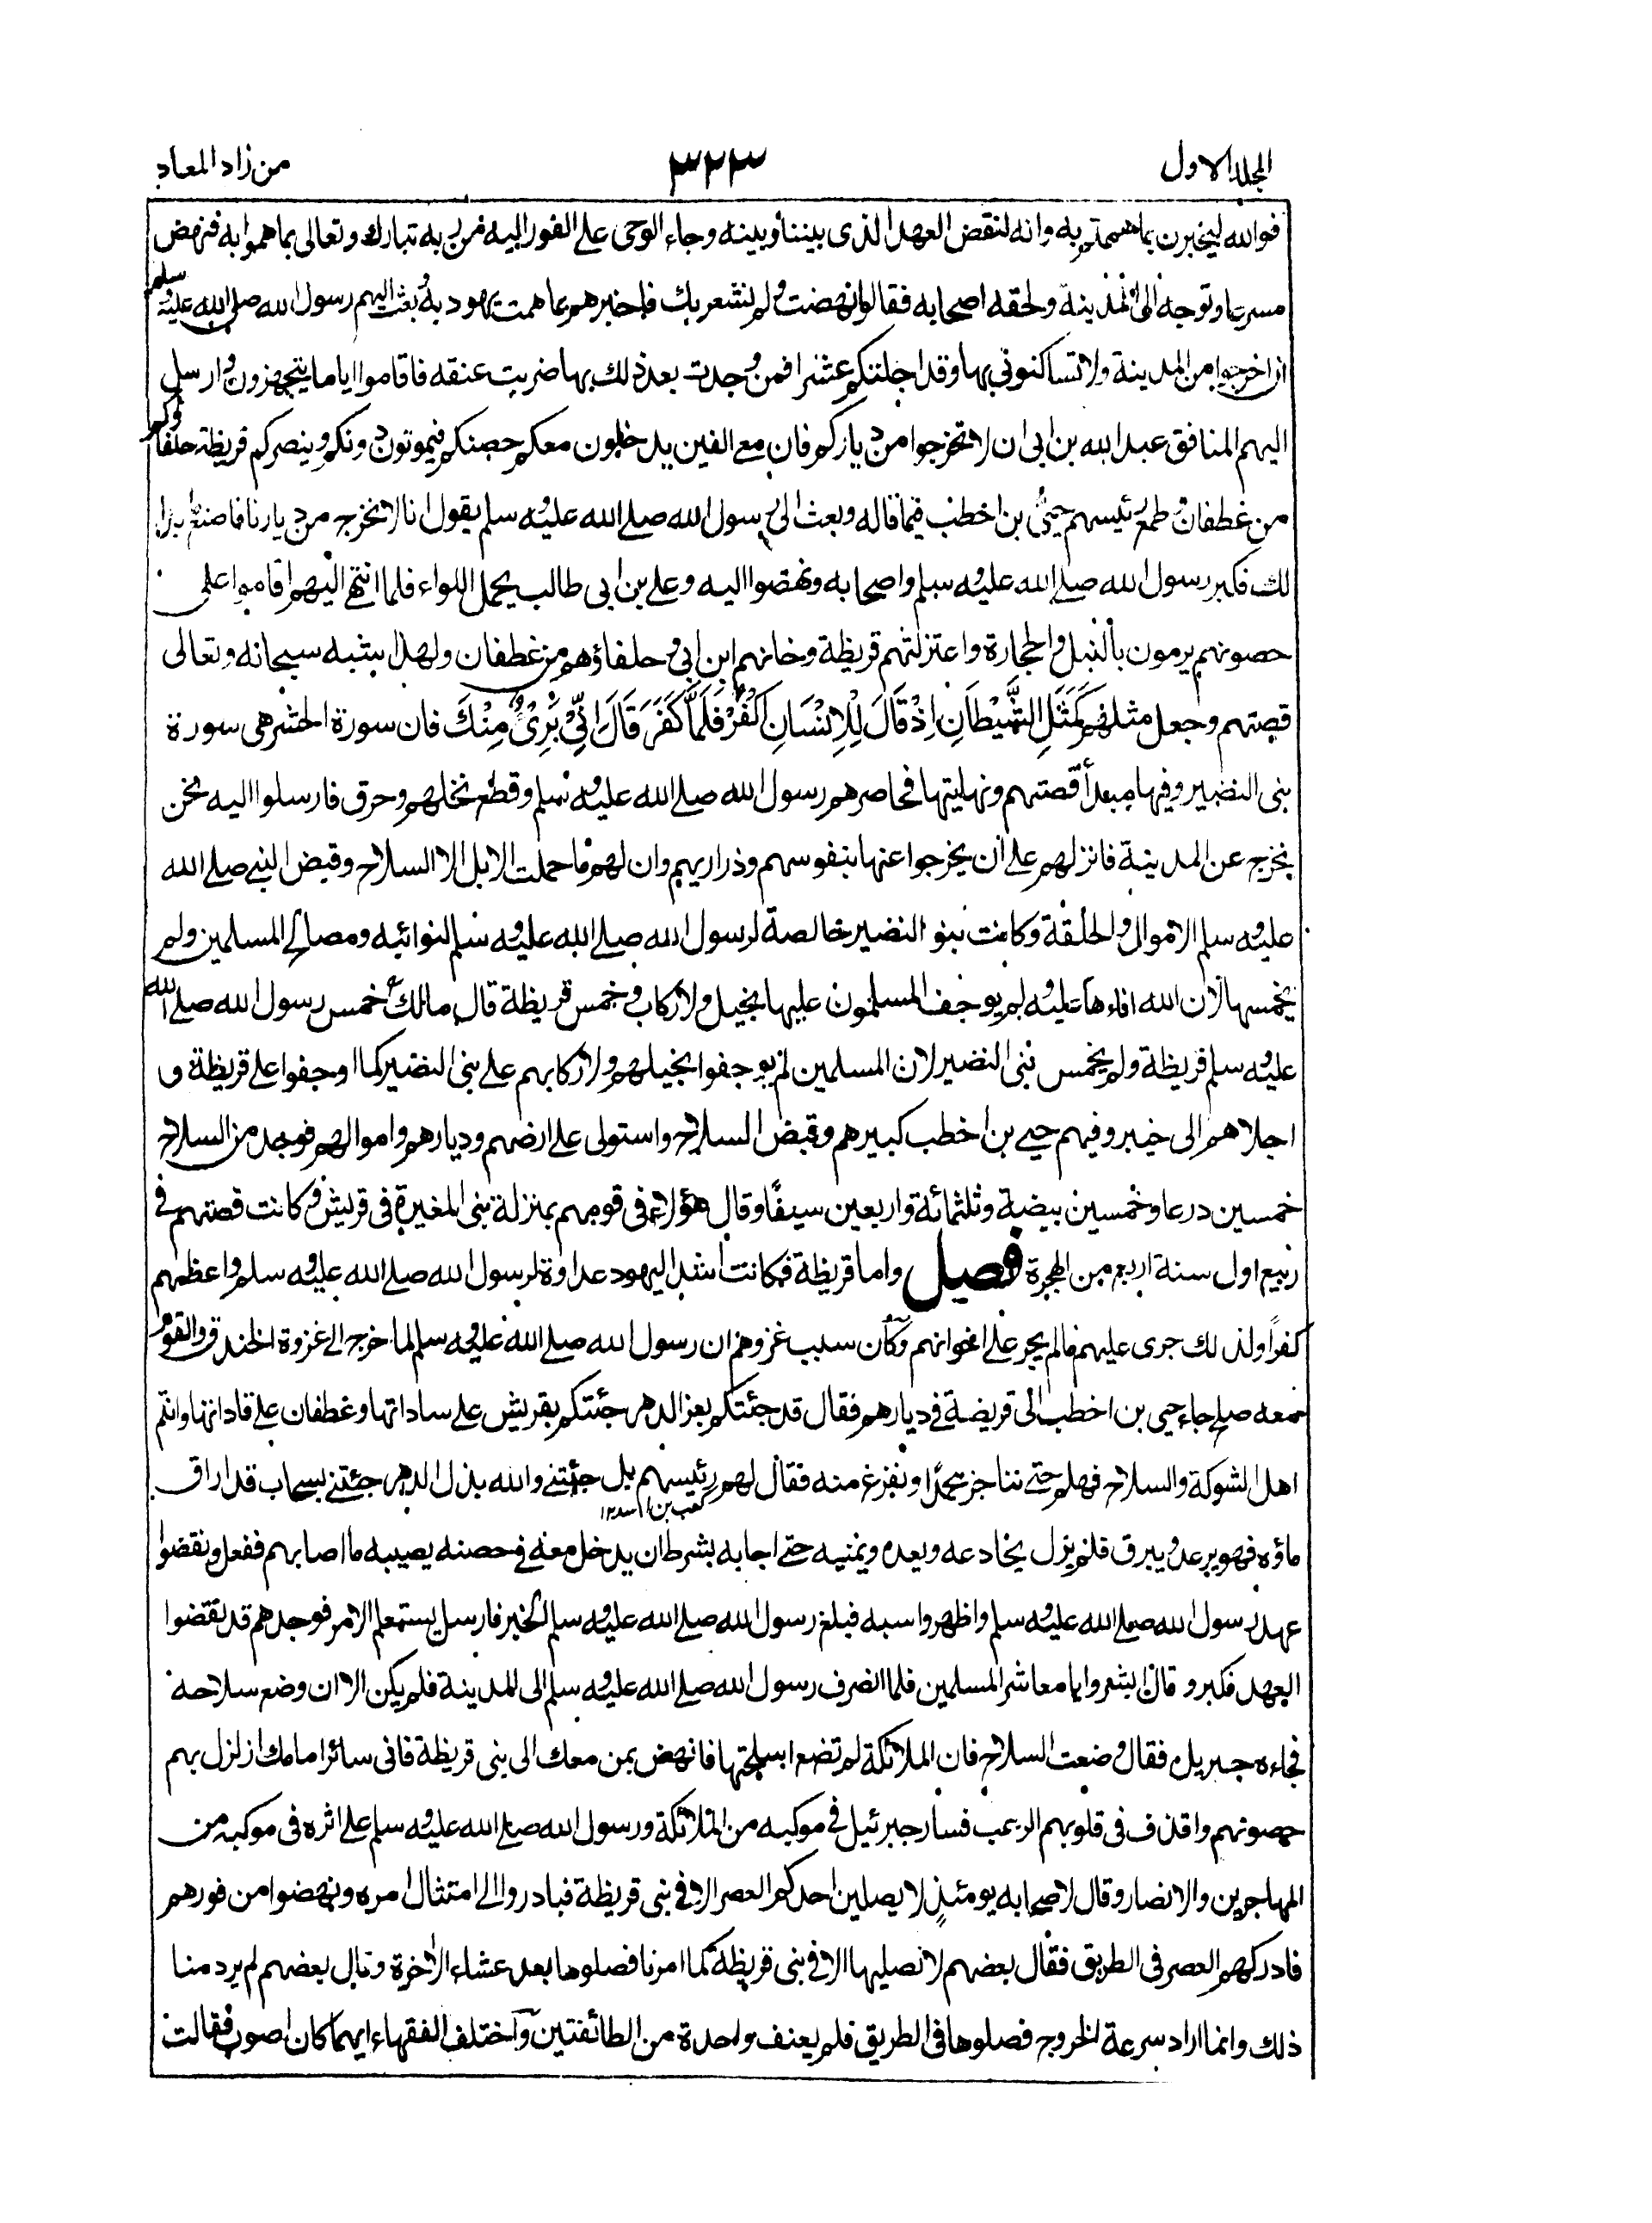 المجلد الاول
٣٢٣
من زاد المعاد
فوالله ليخبرن بما هممتم به وانه لنقض العهد الذى بيننا وبينه وجاء الوحى على الفور اليه من ربه تبارك وتعالى بما هموا به فنهض
مسرعا وتوجه الى المدينة ولحقه اصحابه فقالوا نهضت ولم نشعر بك فاخبرهم بما همت يهود به وبعث اليهم رسول الله صلى الله عليه وسلم
ان اخرجوا من المدينة ولا تساكنونى بها وقد اجلتكم عشرا فمن وجدت بعد ذلك بها ضربت عنقه فاقاموا اياما يتجهزون وارسل
اليهم المنافق عبد الله بن ابى ان لا تخرجوا من دياركم فان معى الفين يدخلون معكم حصنكم فيموتون دونكم وينصركم قريظة وحلفاؤكم
من غطفان وطمع رئيسهم حيى بن اخطب فيما قاله وبعث الى رسول الله صلى الله عليه وسلم يقول انا لا نخرج من ديارنا فاصنع ما بدا
لك فكبر رسول الله صلى الله عليه وسلم واصحابه ونهضوا اليه وعلى بن ابى طالب يحمل اللواء فلما انتهى اليهم اقاموا على
حصونهم يرمون بالنبل والحجارة واعتزلتهم قريظة وخانهم ابن ابى وحلفاؤهم من غطفان ولهذا شبه سبحانه وتعالى
قصتهم وجعل مثلهم كَمَثَلِ الشَّيْطَانِ اِذْ قَالَ لِلْاِنْسَانِ اكْفُرْ فَلَمَّا كَفَرَ قَالَ اِنِّىْ بَرِىْءٌ مِنْكَ فان سورة الحشر هى سورة
بنى النضير وفيها مبدأ قصتهم ونهايتها فحاصرهم رسول الله صلى الله عليه وسلم وقطع نخلهم وحرق فارسلوا اليه نحن
نخرج عن المدينة فانزلهم على ان يخرجوا عنها بنفوسهم وذراريهم وان لهم ما حملت الابل الا السلاح وقبض النبى صلى الله
عليه وسلم الاموال والحلقة وكانت بنو النضير خالصة لرسول الله صلى الله عليه وسلم لنوائبه ومصالح المسلمين ولم
يخمسها لان الله افاءها عليه ولم يوجف المسلمون عليها بخيل ولا ركاب وخمس قريظة قال مالك خمس رسول الله صلى الله
عليه وسلم قريظة ولم يخمس بنى النضير لان المسلمين لم يوجفوا بخيلهم ولا ركابهم على بنى النضير كما اوجفوا على قريظة و
اجلاهم الى خيبر وفيهم حيى بن اخطب كبيرهم وقبض السلاح واستولى على ارضهم وديارهم واموالهم فوجد من السلاح
خمسين درعا وخمسين بيضة وثلثمائة واربعين سيفًا وقال هؤلاء فى قومهم بمنزلة بنى المغيرة فى قريش وكانت قصتهم فى
ربيع اول سنة اربع من الهجرة فصل واما قريظة فكانت اشد اليهود عداوة لرسول الله صلى الله عليه وسلم واعظمهم
كفرًا ولذلك جرى عليهم ما لم يجر على اخوانهم وكان سبب غزوهم ان رسول الله صلى الله عليه وسلم لما خرج الى غزوة الخندق والقوم
معه صلح جاء حيى بن اخطب الى قريضة فى ديارهم فقال قد جئتكم بعز الدهر جئتكم بقريش على ساداتها وغطفان على قاداتها وانتم
اهل الشوكة والسلاح فهلم حتى نناجز محمدًا ونفرغ منه فقال لهم رئيسهم بل جئتنى والله بذل الدهر جئتنى بسحاب قد اراق
كعب بن اسد ١٢
ماؤه فهو يرعد ويبرق فلم يزل يخادعه ويعده ويمنيه حتى اجابه بشرط ان يدخل معه فى حصنه يصيبه ما اصابهم ففعل ونقضوا
عهد رسول الله صلى الله عليه وسلم واظهروا سبه فبلغ رسول الله صلى الله عليه وسلم الخبر فارسل يستعلم الامر فوجدهم قد نقضوا
العهد فكبر وقال ابشروا يا معاشر المسلمين فلما انصرف رسول الله صلى الله عليه وسلم الى المدينة فلم يكن الا ان وضع سلاحه
فجاءه جبريل فقال وضعت السلاح فان الملائكة لم تضع اسلحتها فانهض بمن معك الى بنى قريظة فانى سائر امامك ازلزل بهم
حصونهم واقذف فى قلوبهم الرعب فسار جبرئيل فى موكبه من الملائكة ورسول الله صلى الله عليه وسلم على اثره فى موكبه من
المهاجرين والانصار وقال لاصحابه يومئذٍ لا يصلين احدكم العصر الا فى بنى قريظة فبادروا الى امتثال امره ونهضوا من فورهم
فادركهم العصر فى الطريق فقال بعضهم لا نصليها الا فى بنى قريظة كما امرنا فصلوها بعد عشاء الاخرة وقال بعضهم لم يرد منا
ذلك وانما اراد سرعة الخروج فصلوها فى الطريق فلم يعنف واحدة من الطائفتين واختلف الفقهاء ايهما كان اصوب فقالت